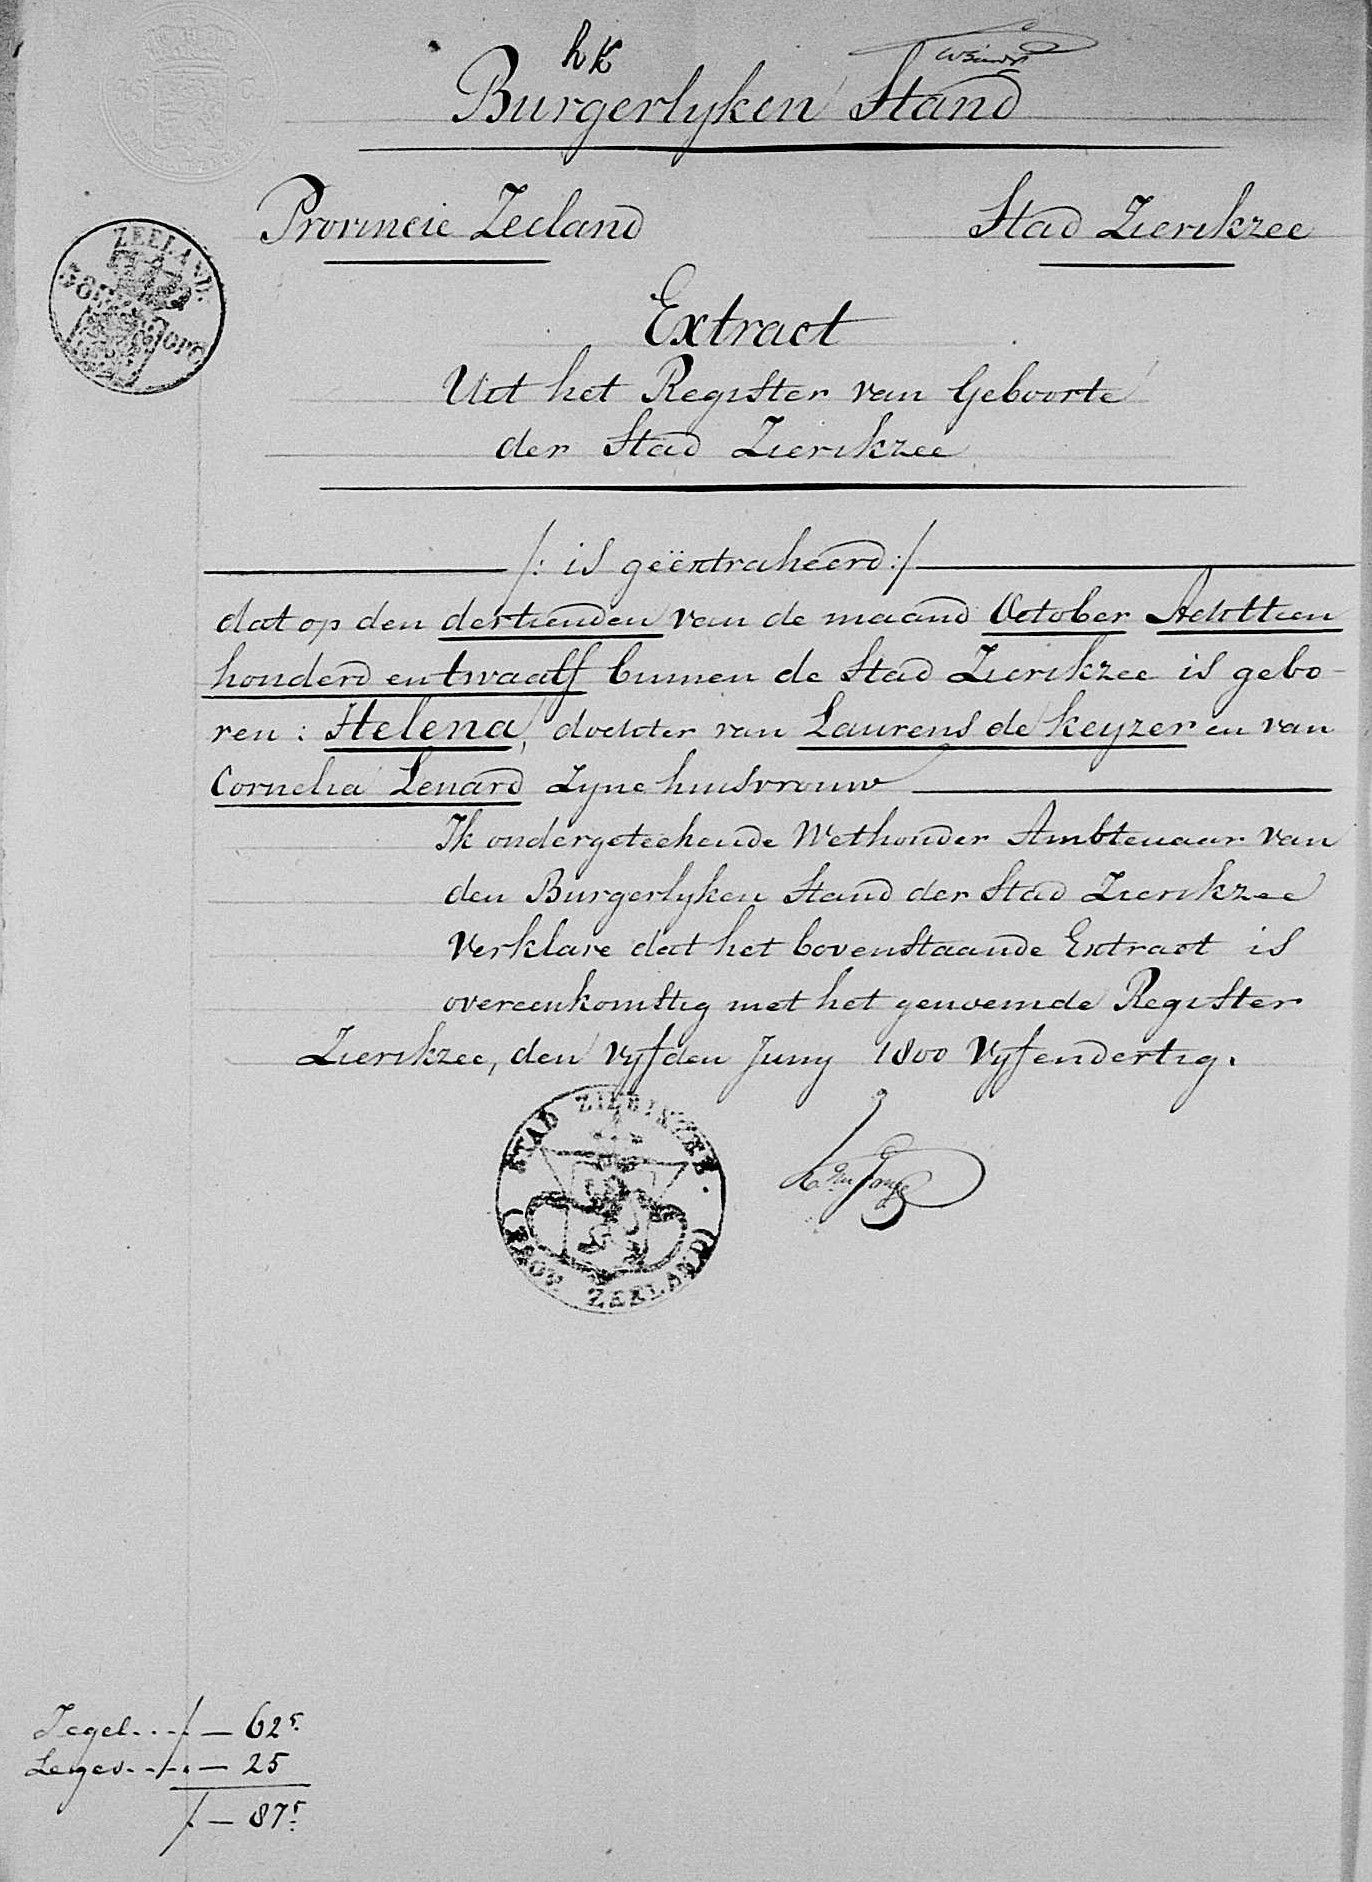 hk
Burgerlyken Stand
Provincie Zeeland
Stad Zierikzee
ZEELAND.
Extract
Uit het Register van Geboorte
der Stad Zierikzee
/: is geëxtraheerd :/
dat op den dertienden van de maand October Achttien
honderd en twaalf binnen de Stad Zierikzee is gebo-
ren : Helena, dochter van Laurens de Keyzer en van
Cornelia Lenard Zyne huisvrouw
Ik ondergeteekende Wethouder Ambtenaar van
den Burgerlyken Stand der Stad Zierikzee
Verklare dat het bovenstaande Extract is
overeenkomstig met het genoemde Register
Zierikzee, den vyfden Juny 1800 Vyfendertig.
STAD ZIERIKZEE.
(PROV. ZEELAND)
Zegel . . . f. — 62⁵
Leges . . f. — 25
f. — 87⁵